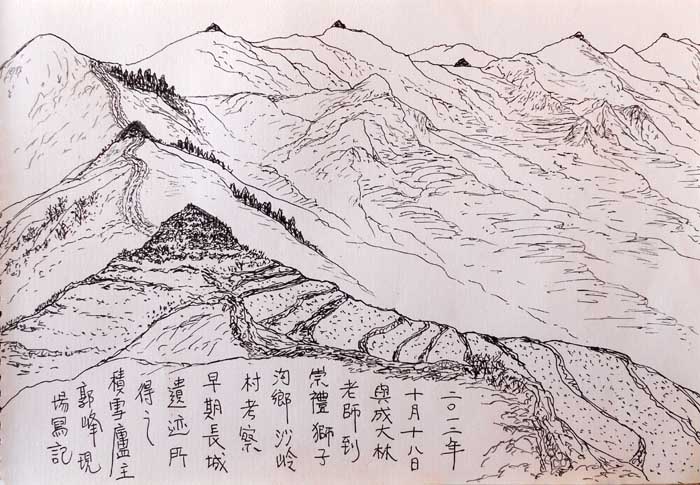 二〇一二年
十月十八日
與成大林
老師到
崇禮獅子
沟鄉沙岭
村考察
早期長城
遺迹所
得之
積雪廬主
郭峰現
場寫記